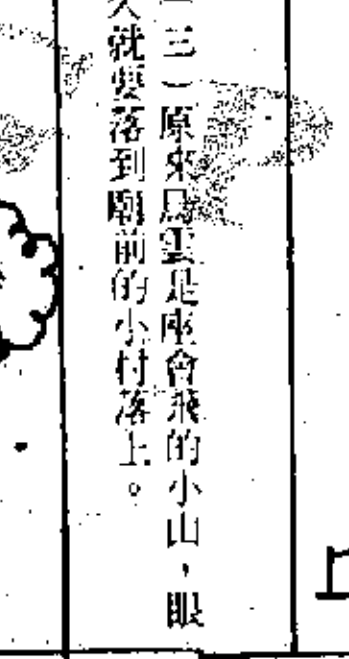 三）原來烏雲是座會飛的小山，眼
就要落到廟前的小村落上。